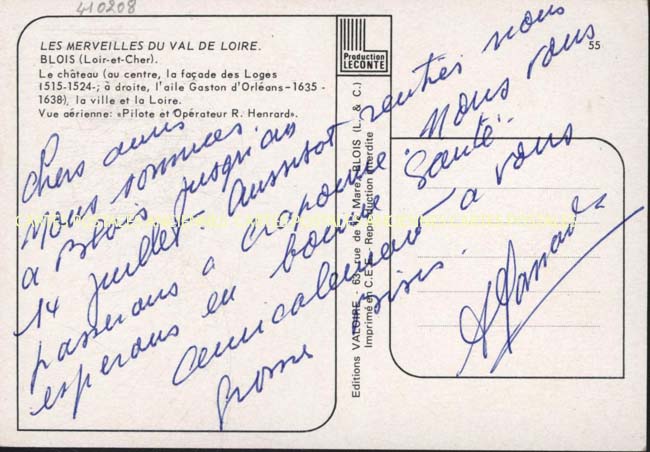 410208
LES MERVEILLES DU VAL DE LOIRE.
BLOIS (Loir-et-Cher).
Le château (au centre, la façade des Loges
1515-1524-; à droite, l'aile Gaston d'Orléans-1635-
1638), la ville et la Loire.
Vue aérienne: «Pilote et Opérateur R. Henrard».
Production
LECONTE
55
Editions VALOIRE - 63, rue de la Mare, BLOIS (L. & C.)
Imprimé en C.E.E. - Reproduction interdite
Chers amis
Nous sommes
a Blois jusqu'au
14 juillet Aussitot rentrés nous
passerons a craponne. Nous vous
esperons en bonne santé.
amicalement a vous